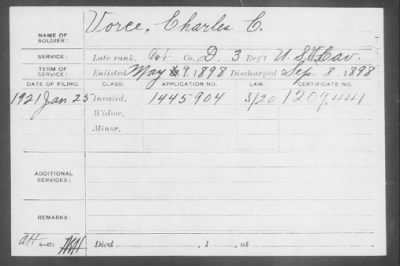 NAME OF SOLDIER: Vorce, Charles C.
SERVICE: Late rank, Pvt Co. D, 3 Reg't U.S.V. Cav.
TERM OF SERVICE: Enlisted May 9, 1898 Discharged Sep. 8, 1898
DATE OF FILING. CLASS. APPLICATION NO. LAW. CERTIFICATE NO.
1921 Jan 25 Invalid, 1445904 5/20 1209441
Widow,
Minor,
ADDITIONAL SERVICES:
REMARKS:
Died , 1 , at